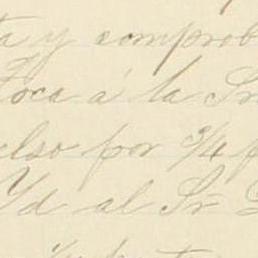 ta y comprob
Toca á la Sr
elso por 3/4 p
Yd al Sr